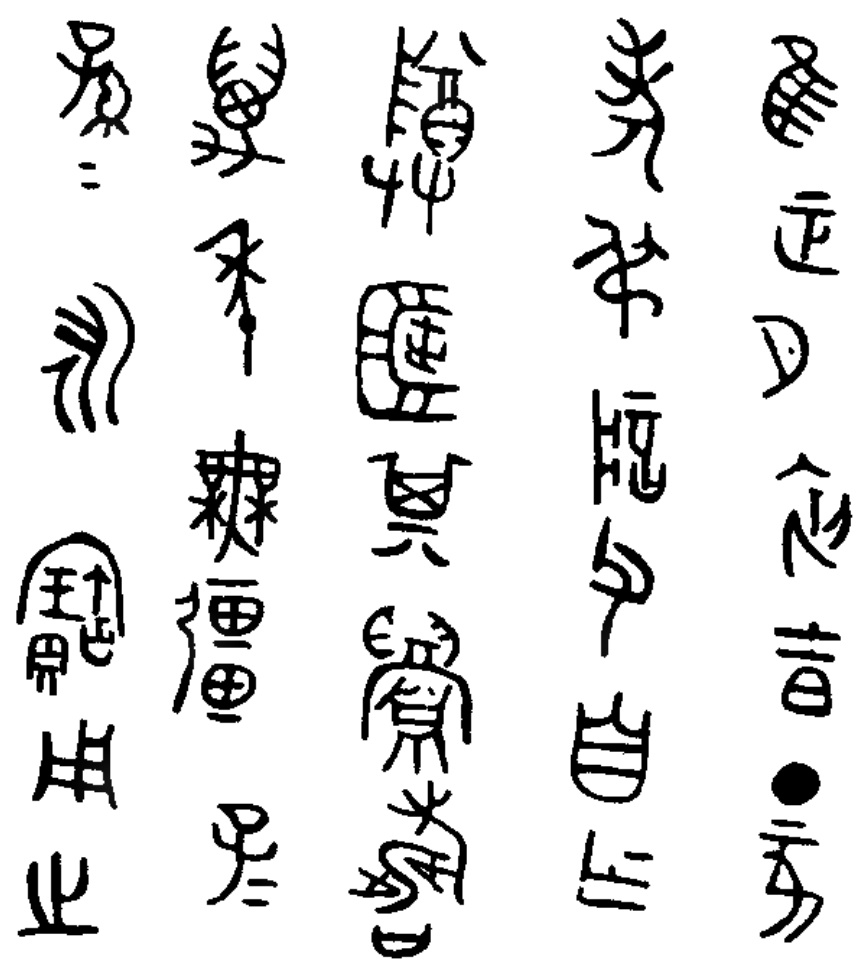 隹正月初吉丁亥
考叔父自乍
尊簠其眉壽
萬年無彊子＝
孫＝永寶用之